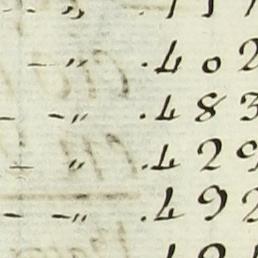 — „ .402
— -„ .483
— „ .429
— -„ .492